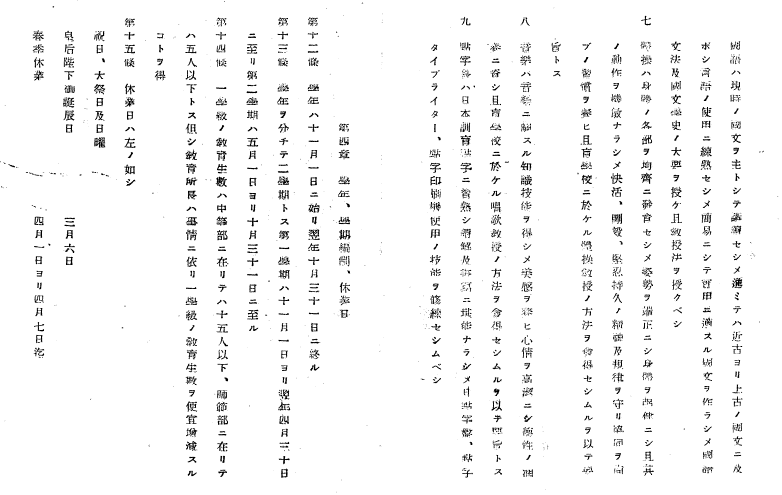 國語ハ現時ノ國文ヲ主トシテ講讀セシメ進ミテハ近古ヨリ上古ノ國文ニ及
ボシ言語ノ使用ニ練熟セシメ簡易ニシテ實用ニ適スル國文ヲ作ラシメ國語
文法及國文學史ノ大要ヲ授ケ且敎授法ヲ授クベシ
七 體操ハ身體ノ各部ヲ均齊ニ發育セシメ姿勢ヲ端正ニシ身體ヲ强健ニシ且其
ノ動作ヲ機敏ナラシメ快活、剛毅、堅忍持久ノ精神及規律ヲ守リ協同ヲ尙
ブノ習慣ヲ養ヒ且盲學校ニ於ケル體操敎授ノ方法ヲ會得セシムルヲ以テ要
旨トス
八 音樂ハ音樂ニ關スル知識技能ヲ得シメ美感ヲ養ヒ心情ヲ高潔ニシ德性ノ涵
養ニ資シ且盲學校ニ於ケル唱歌敎授ノ方法ヲ會得セシムルヲ以テ要旨トス
九 點字ハ日本訓盲點字ニ習熟シ
タイプライター、點字印刷機使用ノ技能ヲ修練セシムベシ
第四章 學年、學期編制、休業日
第十二條 學年ハ十一月一日ニ始リ翌年十月三十一日ニ終ル
第十三條 學年ヲ分チテ二學期トス第一學期ハ十一月一日ヨリ翌年四月三十日
ニ至リ第二學期ハ五月一日ヨリ十月三十一日ニ至ル
第十四條 一學級ノ敎育生數ハ中等部ニ在リテハ十五人以下、師範部ニ在リテ
ハ五人以下トス但シ敎育所長ハ事情ニ依リ一學級ノ敎育生數ヲ便宜增減スル
コトヲ得
第十五條 休業日ハ左ノ如シ
祝日、大祭日及日曜
皇后陛下御誕辰日 三月六日
春季休業 四月一日ヨリ四月七日迄